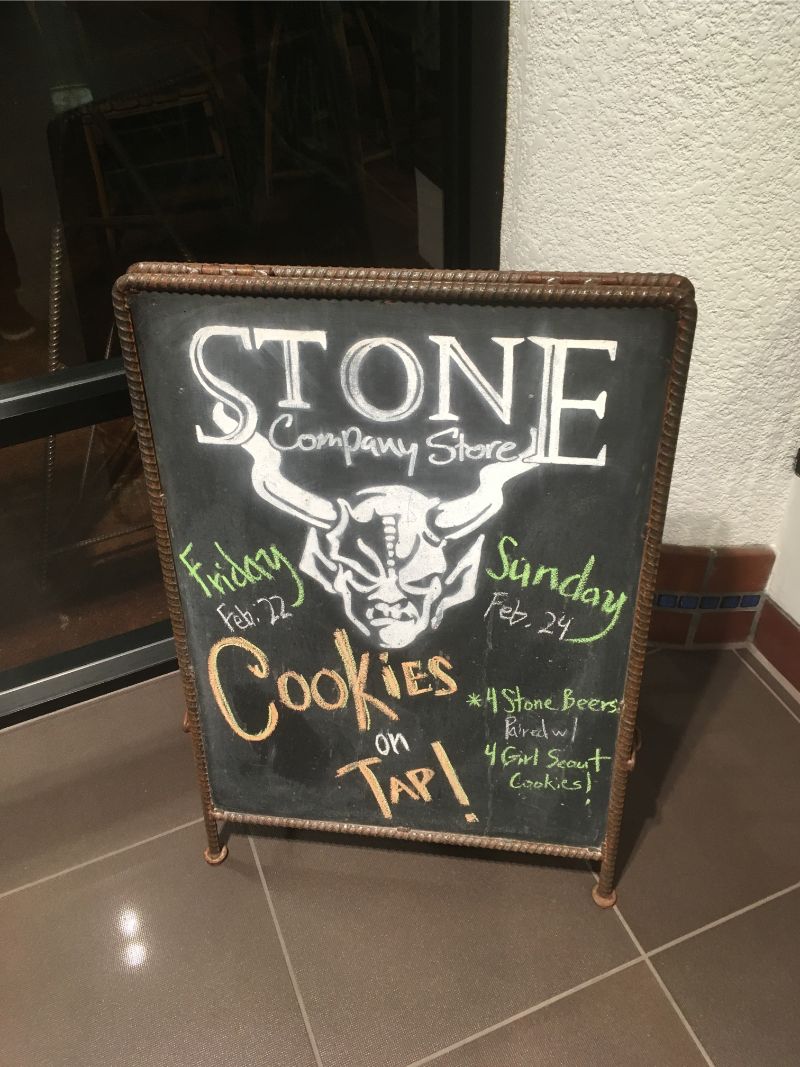 STONE
Company Store
Friday
Feb. 22
Sunday
Feb. 24
COOKIES
on
TAP!
*4 Stone Beers
Paired w/
4 Girl Scout
Cookies!